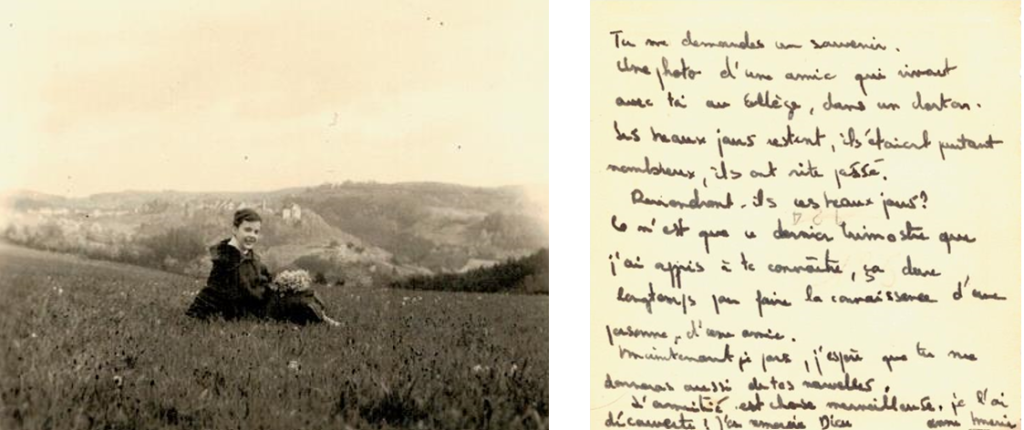 Tu me demandes un souvenir.
Une photo d'une amie qui vivait
avec toi au Collège, dans un dortoir.
Les beaux jours restent, ils étaient pourtant
nombreux, ils ont vite passé.
Reviendront-ils ces beaux jours?
Ce n'est que ce dernier trimestre que
j'ai appris à te connaître, ça dure
longtemps pour faire la connaissance d'une
personne, d'une amie.
Maintenant je pars, j'espère que tu me
donneras aussi de tes nouvelles.
L'amitié est chose merveilleuse, je l'ai
découverte! J'en remercie Dieu anne Marie